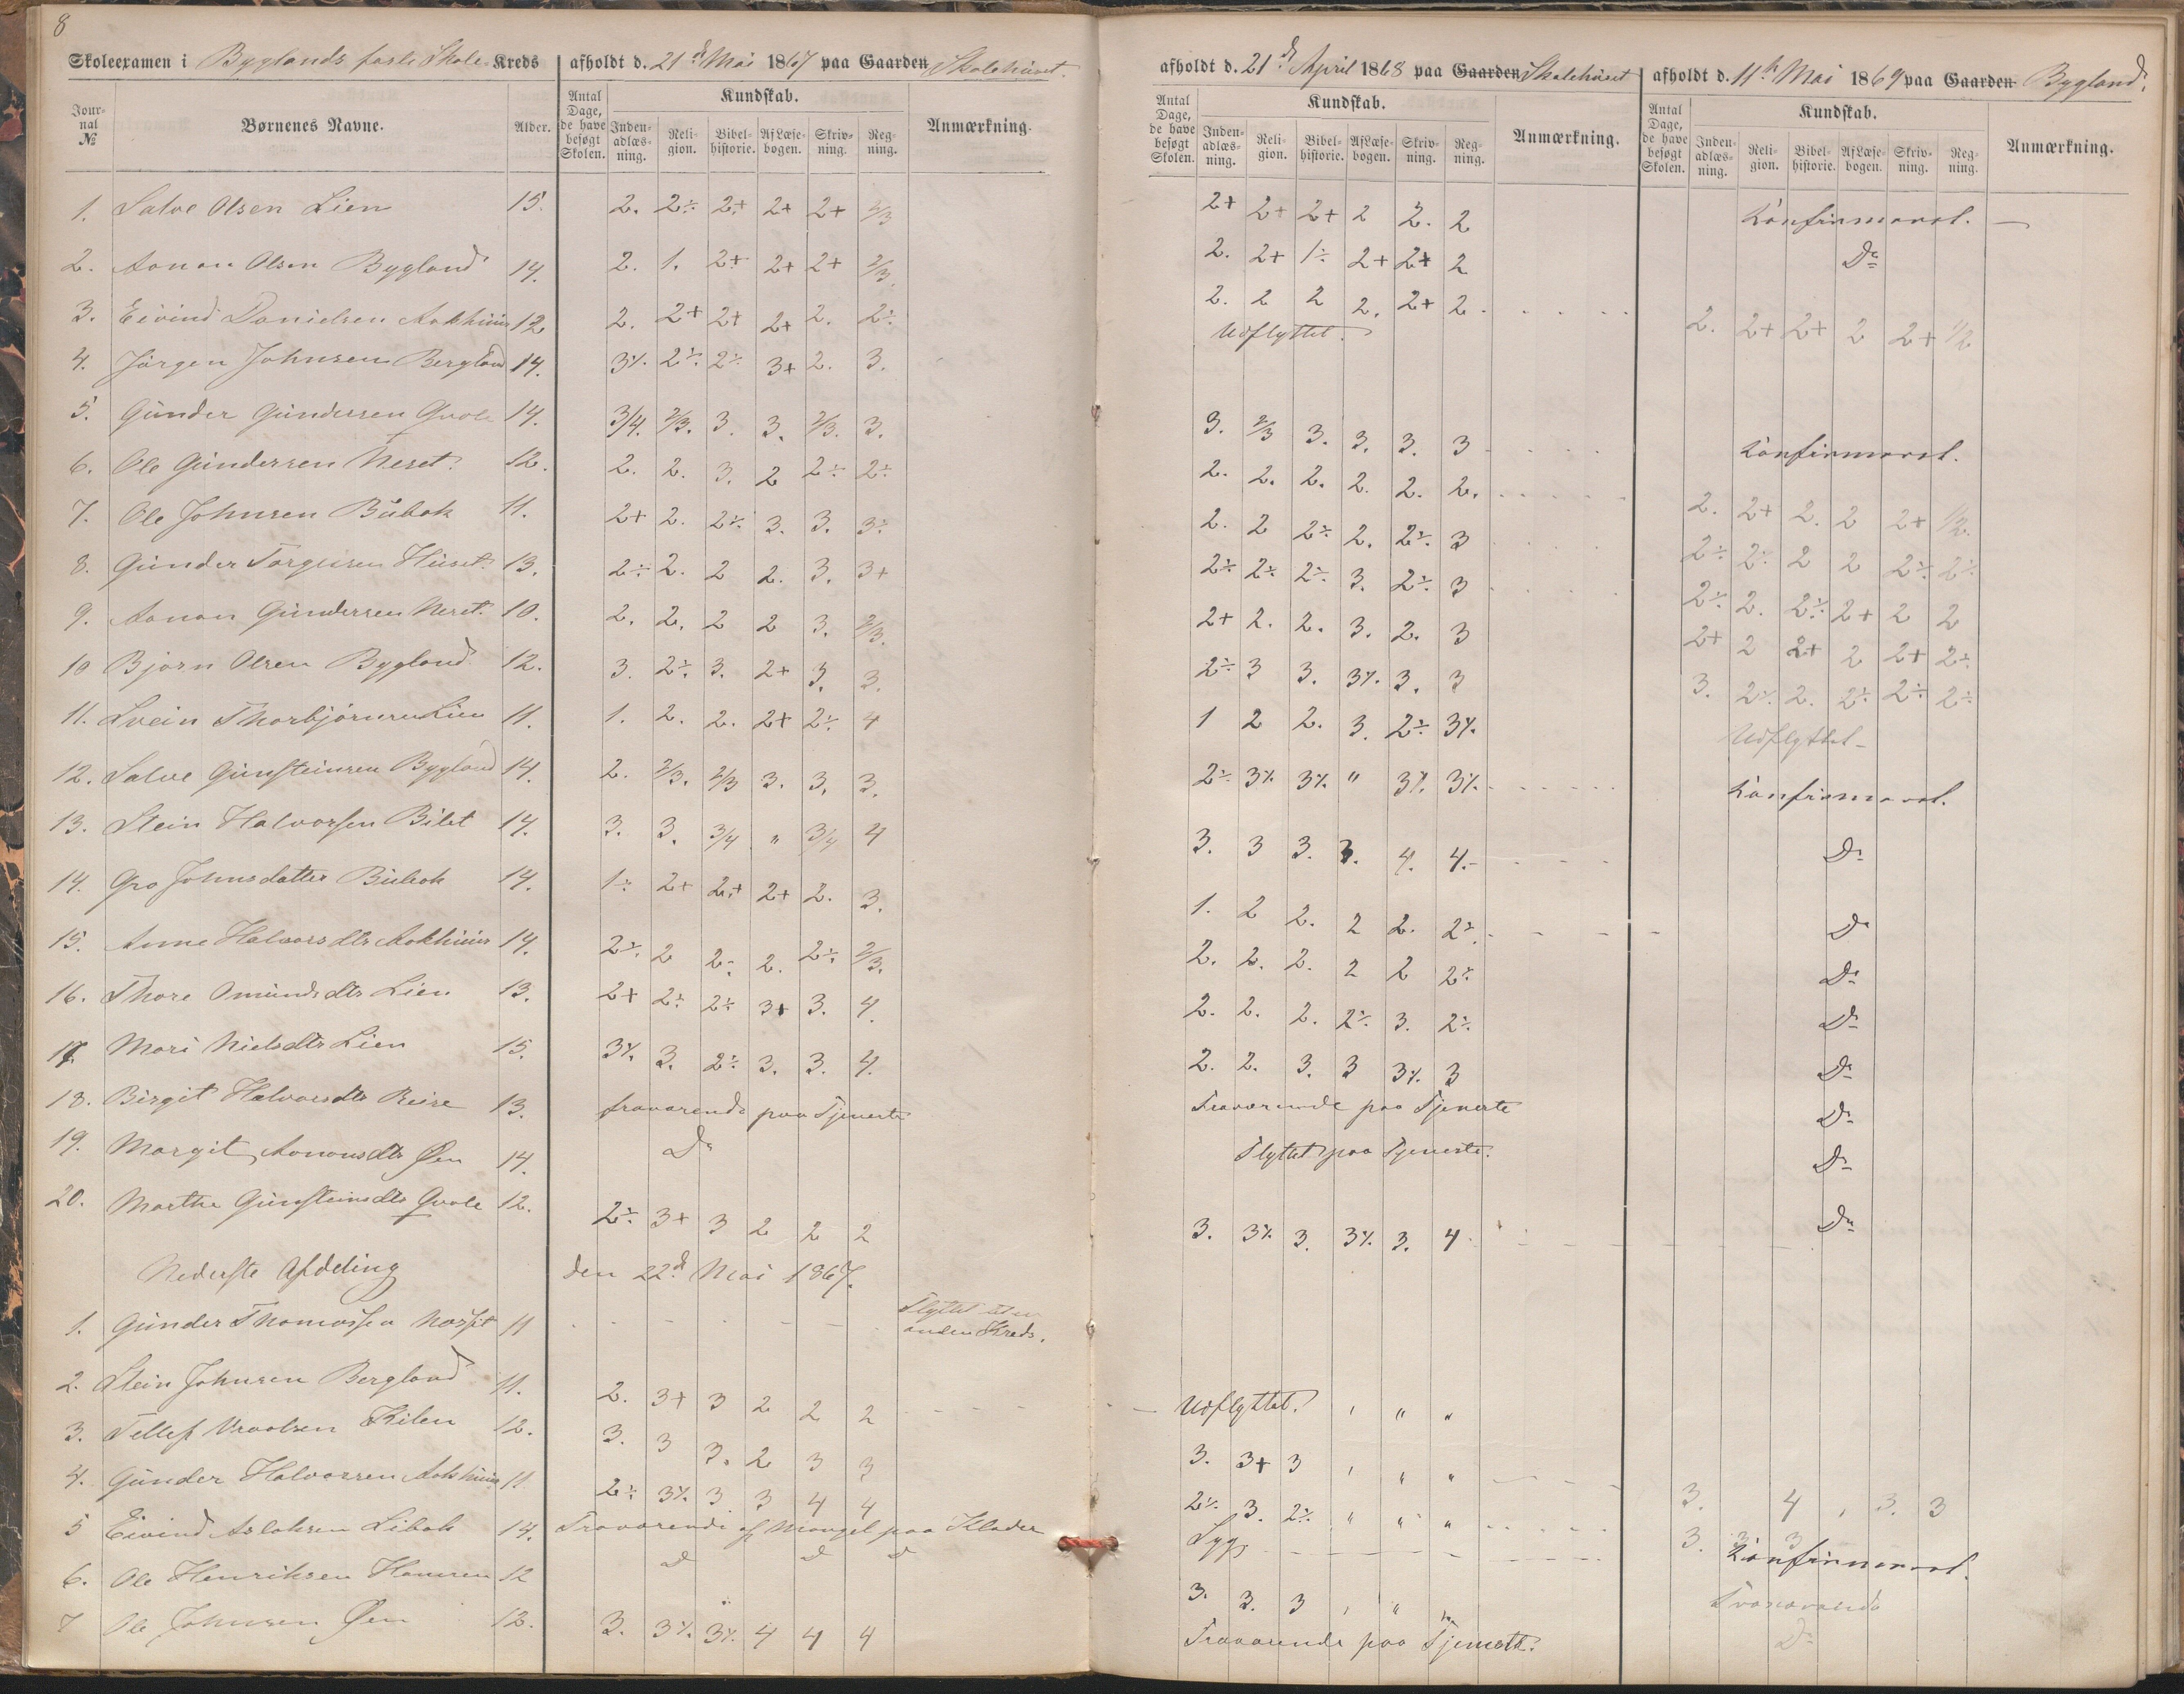 8
Skoleexamen i Byglands faste Skole Kreds afholdt d. 21de Mai 1867 paa Gaarden Skolehuset.
Journal № Børnenes Navne. Alder. Antal Dage, de have besøgt Skolen. Kundskab. Indenadlæsning. Religion. Bibelhistorie. Af Læsebogen. Skrivning. Regning. Anmærkning.
1. Salve Olsen Lien 15. 2. 2÷ 2+ 2+ 2+ 2/3
2. Aanon Olsen Bygland 14. 2. 1. 2+ 2+ 2+ 2/3.
3. Eivind Danielsen Aakhuus 12 2. 2+ 2+ 2+ 2. 2÷
4. Jörgen Johnsen Bergland 14. 3÷ 2÷ 2÷ 3+ 2. 3.
5. Gunder Gundersen Qvole 14. 3/4. 2/3. 3. 3. 2/3. 3.
6. Ole Gundersen Neset. 12. 2. 2. 3. 2 2÷ 2÷
7. Ole Johnsen Bubak 11. 2+ 2. 2÷ 3. 3. 3÷
8. Gunder Torgersen Huset. 13. 2÷ 2. 2 2. 3. 3+
9. Aanon Gundersen Neset. 10. 2. 2. 2 2 3. 2/3.
10 Bjorn Olsen Bygland. 12. 3. 2÷ 3. 2+ 3. 3.
11. Svein Thorbjörnsen Lien 11. 1. 2. 2. 2+ 2÷ 4
12. Salve Gunsteinsen Bygland 14. 2. 2/3. 2/3 3. 3. 3.
13. Stein Halvorsen Bilet 14. 3. 3. 3/4 " 3/4 4
14. Gro Johnsdatter Bubak 14. 1÷ 2+ 2+ 2+ 2. 3.
15. Anne Halvorsdtr Aakhuus 14. 2÷ 2 2÷ 2. 2÷ 2/3.
16. Thore Omundsdtr Lien 13. 2+ 2÷ 2÷ 3+ 3. 4.
17. Mari Nielsdtr Lien 15. 3÷ 3. 2÷ 3. 3. 4.
18. Birgit Halvorsdtr Reise 13. fraværende paa Tjeneste
19. Margit Aanonsdtr Øen 14. Do
20. Marthe Gunsteinsdtr Qvole 12. 2÷ 3+ 3 2 2 2
Nederste Afdeling den 22de Mai 1867.
1. Gunder Thomassen 11 Flyttet til en anden Kreds.
2. Stein Johnsen Bergland 11. 2. 3+ 3 2 2 2
3. Tellef Kilen 12. 3. 3 3. 2 3 3
4. Gunder Halvorsen Aakhuus 11 2÷ 3÷ 3 3 4 4
5 Eivind Aslaksen Libak 14. Fraværende af Mangel paa Klæder
6. Ole Henriksen 12 Do Do Do
7 Ole Johnsen Øen 13. 3. 3÷ 3÷ 4 4 4
afholdt d. 21de April 1868 paa Gaarden Skolehuset afholdt d. 11te Mai 1869 paa Gaarden Bygland.
Antal Dage, de have besøgt Skolen. Kundskab. Indenadlæsning. Religion. Bibelhistorie. Af Læsebogen. Skrivning. Regning. Anmærkning. Antal Dage, de have besøgt Skolen. Kundskab. Indenadlæsning. Religion. Bibelhistorie. Af Læsebogen. Skrivning. Regning. Anmærkning.
2+ 2+ 2+ 2 2. 2 Konfirmeret.
2. 2+ 1÷ 2+ 2+ 2 Do
2. 2 2 2. 2+ 2 2. 2+ 2+ 2 2+ 1/2
Udflyttet.
3. 2/3 3. 3. 3. 3 Konfirmeret.
2. 2. 2. 2. 2. 2. 2. 2+ 2. 2 2+ 1/2.
2. 2 2÷ 2. 2÷ 3 2÷ 2÷ 2 2 2÷ 2÷
2÷ 2÷ 2÷ 3. 2÷ 3 2÷ 2. 2÷ 2+ 2 2
2+ 2. 2. 3. 2. 3 2+ 2 2+ 2 2+ 2÷
2÷ 3 3. 3÷ 3. 3 3. 2÷ 2. 2÷ 2÷ 2÷
1 2 2. 3. 2÷ 3÷ Udflyttet
2÷ 3÷ 3÷ " 3÷ 3÷ Konfirmeret.
3. 3 3. 3. 4. 4. Do
1. 2 2. 2 2. 2÷ Do
2. 2. 2. 2 2 2÷ Do
2. 2. 2. 2÷ 3. 2÷ Do
2. 2. 3. 3 3÷ 3 Do
Fraværende paa Tjeneste Do
Flyttet paa Tjeneste. Do
3. 3÷ 3. 3÷ 3. 4 Do
Udflyttet. " "
3. 3+ 3 " "
2÷ 3. 2÷ " " " 3. 4 3. 3
Syg 3. 3 3 Konfirmeret.
3. 3. 3 " " Fraværende
Fraværende paa Tjeneste. Do